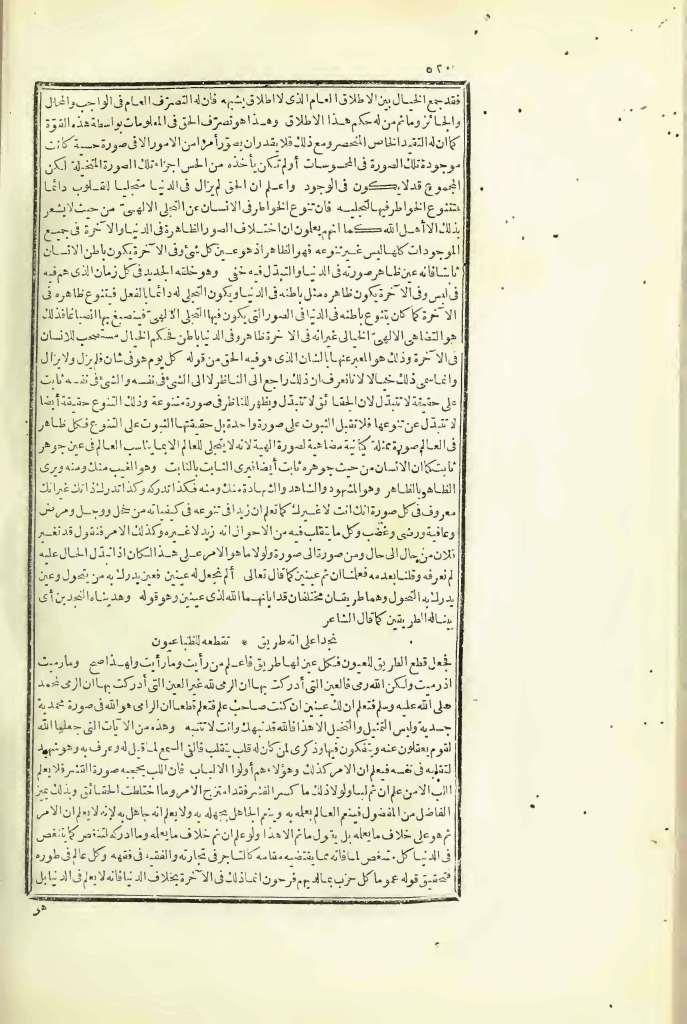 ٥٢٠
فقد جمع الخيال بين الاطلاق العام الذى لا اطلاق يشبهه فان له التصرف العام فى الواجب والمحال
والجائز وما ثم من له حكم هذا الاطلاق وهذا هو تصرف الحق فى المعلومات بواسطة هذه القوة
كما ان له التقيد الخاص المنحصر ومع ذلك فلا يقدر ان يصور أمرا من الامور الا فى صورة حسية كانت
موجودة تلك الصورة فى المحسوسات أو لم تكن يأخذه من الحس اجزاء تلك الصورة المتخيلة لكن
المجموع قد لا يكون فى الوجود واعلم ان الحق لم يزال فى الدنيا متجليا للقلوب دائما
فتتنوع الخواطر فيها لتجليه فان تنوع الخواطر فى الانسان عن التجلى الالهى من حيث لا يشعر
بذلك الا أهل الله كما انهم يعلمون ان اختلاف الصور الظاهرة فى الدنيا والآخرة فى جميع
الموجودات كلها ليس غير تنوعه فهو الظاهر اذ هو عين كل شئ وفى الآخرة يكون باطن الانسان
ثابتا فانه عين ظاهر صورته فى الدنيا والتبدل فيه خفى وهو خلقه الجديد فى كل زمان الذى هم فيه
فى لبس وفى الآخرة يكون ظاهره مثل باطنه فى الدنيا ويكون التجلى له دائما بالفعل فيتنوع ظاهره فى
الآخرة كما كان يتنوع باطنه فى الدنيا فى الصور التى يكون فيها التجلى الالهى فينصبغ بها انصباغا فذلك
هو التضاهى الالهى الخيالى غير انه فى الآخرة ظاهر وفى الدنيا باطن فحكم الخيال مستصحب للانسان
فى الآخرة وذلك هو المعبر عنها بالشان الذى هو فيه الحق من قوله كل يوم هو فى شان فلم يزل ولا يزال
وانما سمى ذلك خيالا لانا نعرف ان ذلك راجع الى الناظر لا الى الشئ فى نفسه والشئ فى نفسه ثابت
على حقيقة لا تتبدل لان الحقائق لا تتبدل ويظهر للناظر فى صورة متنوعة وذلك التنوع حقيقة أيضا
لا تتبدل عن تنوعها فلا تقبل الثبوت على صورة واحدة بل حقيقتها الثبوت على التنوع فكل ظاهر
فى العالم صورة ممثلة كيانية مضاهية لصورة الهية لانه لا يتجلى للعالم الا بما يناسب العالم فى عين جوهر
ثابت كما ان الانسان من حيث جوهره ثابت أيضا فيرى الثابت بالثابت وهو الغيب منك ومنه ويرى
الظاهر بالظاهر وهو المشهود والشاهد والشهادة منك ومنه فكذا تدركه وكذا تدرك ذاتك غير انك
معروف فى كل صورة انك انت لا غيرك كما تعلم ان زيدا فى تنوعه فى كيفياته من خجل ووجل ومرض
وعافية ورضى وغضب وكل ما يتقلب فيه من الاحوال انه زيد لا غيره وكذلك الامر فنقول قد تغير
فلان من حال الى حال ومن صورة الى صورة ولولا ما هو الامر على هذا لكان اذا تبدل الحال عليه
لم نعرفه وقلنا بعدمه فعلمنا ان ثم عينين كما قال تعالى ألم نجعل له عينين فعين يدرك به من يتحول وعين
يدرك به التحول وهما طريقان مختلفان قد ابانهما الله لذى عينين وهو قوله وهديناه النجدين أى
بينا له الطريقين كما قال الشاعر
نجدا على انه طريق * تقطعه للظبا عيون
فجعل قطع الطريق للعيون فكل عين لها طريق فاعلم من رأيت وما رأيت ولهذا صح وما رميت
اذ رميت ولكن الله رمى فالعين التى أدركت بها ان الرمى لله غير العين التى أدركت بها ان الرمى لمحمد
صلى الله عليه وسلم فتعلم ان لك عينين ان كنت صاحب علم فتعلم قطعا ان الرامى هو الله فى صورة محمدية
جسدية وليس التمثيل والتخيل الا هذا فالله قد نبهك وانت لا تتنبه وهذه من الآيات التى جعلها الله
لقوم يعقلون عنه ويتفكرون فيها وذكرى لمن كان له قلب يتقلب فألقى السمع لما قيل له وعرف به وهو شهيد
لتقلبه فى نفسه فيعلم ان الامر كذلك وهؤلاء هم أولوا الالباب فان اللب يحجبه صورة القشر فلا يعلم
اللب الا من علم ان ثم لبا ولولا ذلك ما كسر القشر فقد امتزج الامر وما اختلطت الحقائق وبذلك يميز
الفاضل من المفضول فيتنعم العالم بعلمه به ويتنعم الجاهل بجهله به ولا يعلم انه جاهل به لانه لا يعلم ان الامر
ثم هو على خلاف ما يعلمه بل يقول ما ثم الا هذا ولو علم ان ثم خلاف ما يعلمه وما ادركه لتنغص كما يتنغص
فى الدنيا كل متنغص لما فاته مما يقتضيه مقامه كالتاجر فى تجارته والفقيه فى فقهه وكل عالم فى طوره
فتحقيق قوله عموما كل حزب بما لديهم فرحون انما ذلك فى الآخرة بخلاف الدنيا فانه لا يعلم فى الدنيا بل
هو